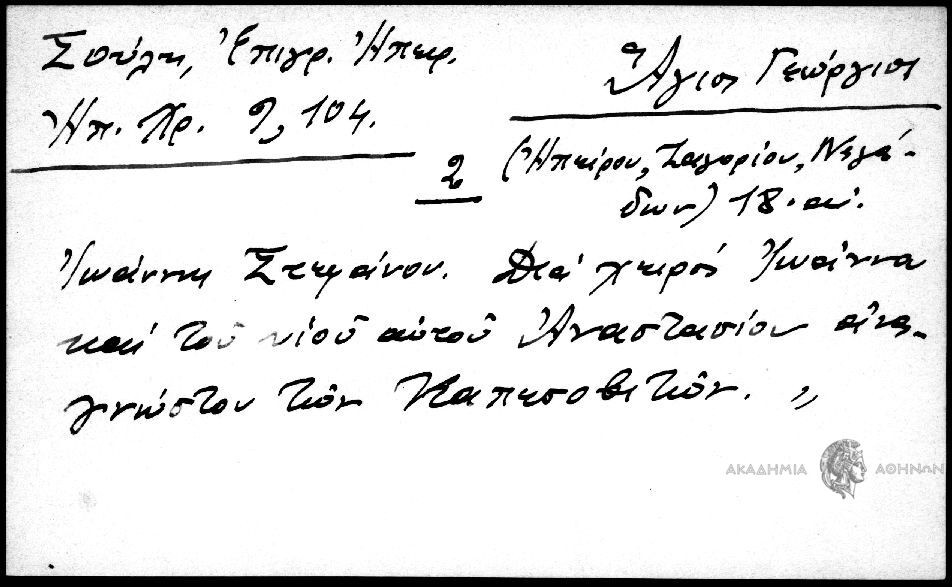 Σούλη, Ἐπιγρ. Ἠπειρ.
Ἠπ. Χρ. 9, 104.
Ἅγιος Γεώργιος
2
(Ἠπείρου, Ζαγορίου, Νεγά-
δων) 18. αἰ.
Ἰωάννης Στεφάνου. Διά χειρός Ἰωάννα
καί τοῦ υἱοῦ αὐτοῦ Ἀναστασίου ἀνα-
γνώστου τῶν Καπεσοβιτῶν. „
ΑΚΑΔΗΜΙΑ ΑΘΗΝΩΝ